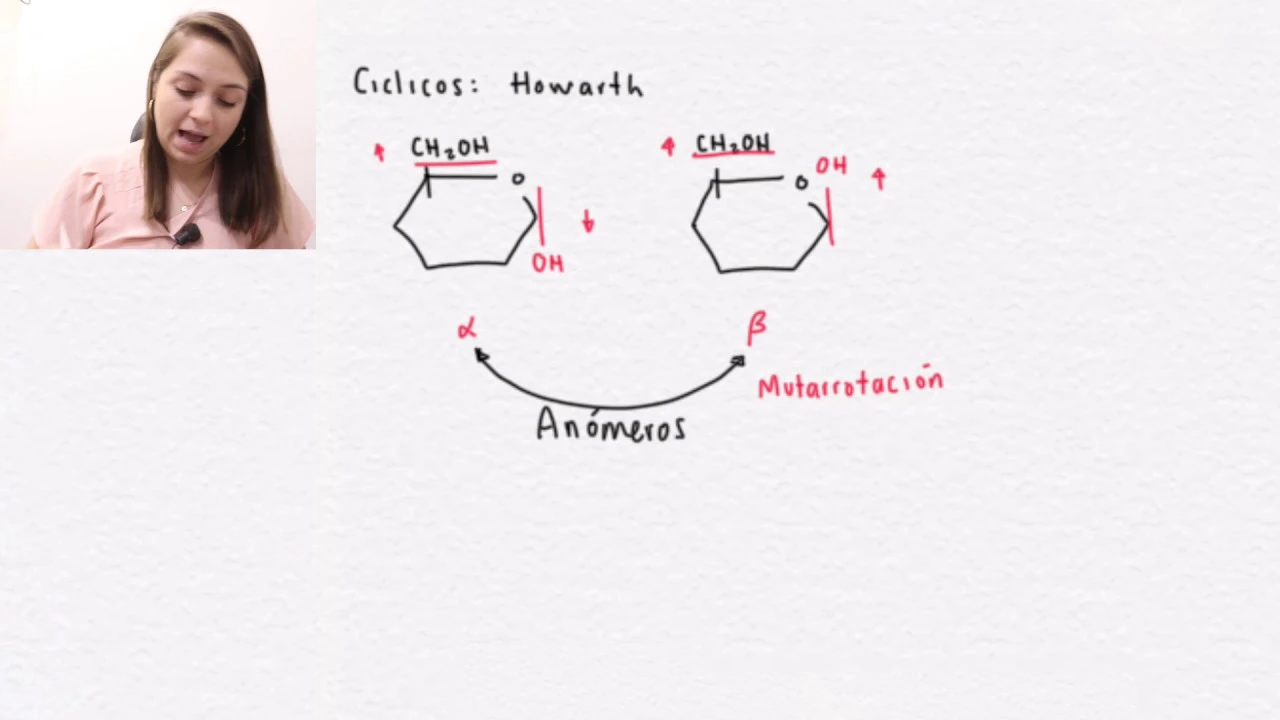 Ciclicos: Howarth
CH₂OH
CH₂OH
OH
O
O
OH
α
β
Mutarrotación
Anómeros